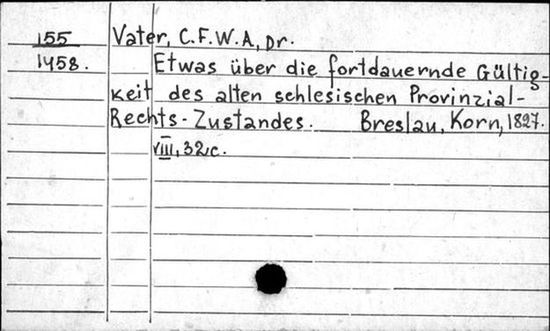 155 Vater, C.F.W.A, Dr.
1458. Etwas über die fortdauernde Gültig-
keit des alten schlesischen Provinzial-
Rechts-Zustandes. Breslau, Korn, 1827.
VIII, 32c.